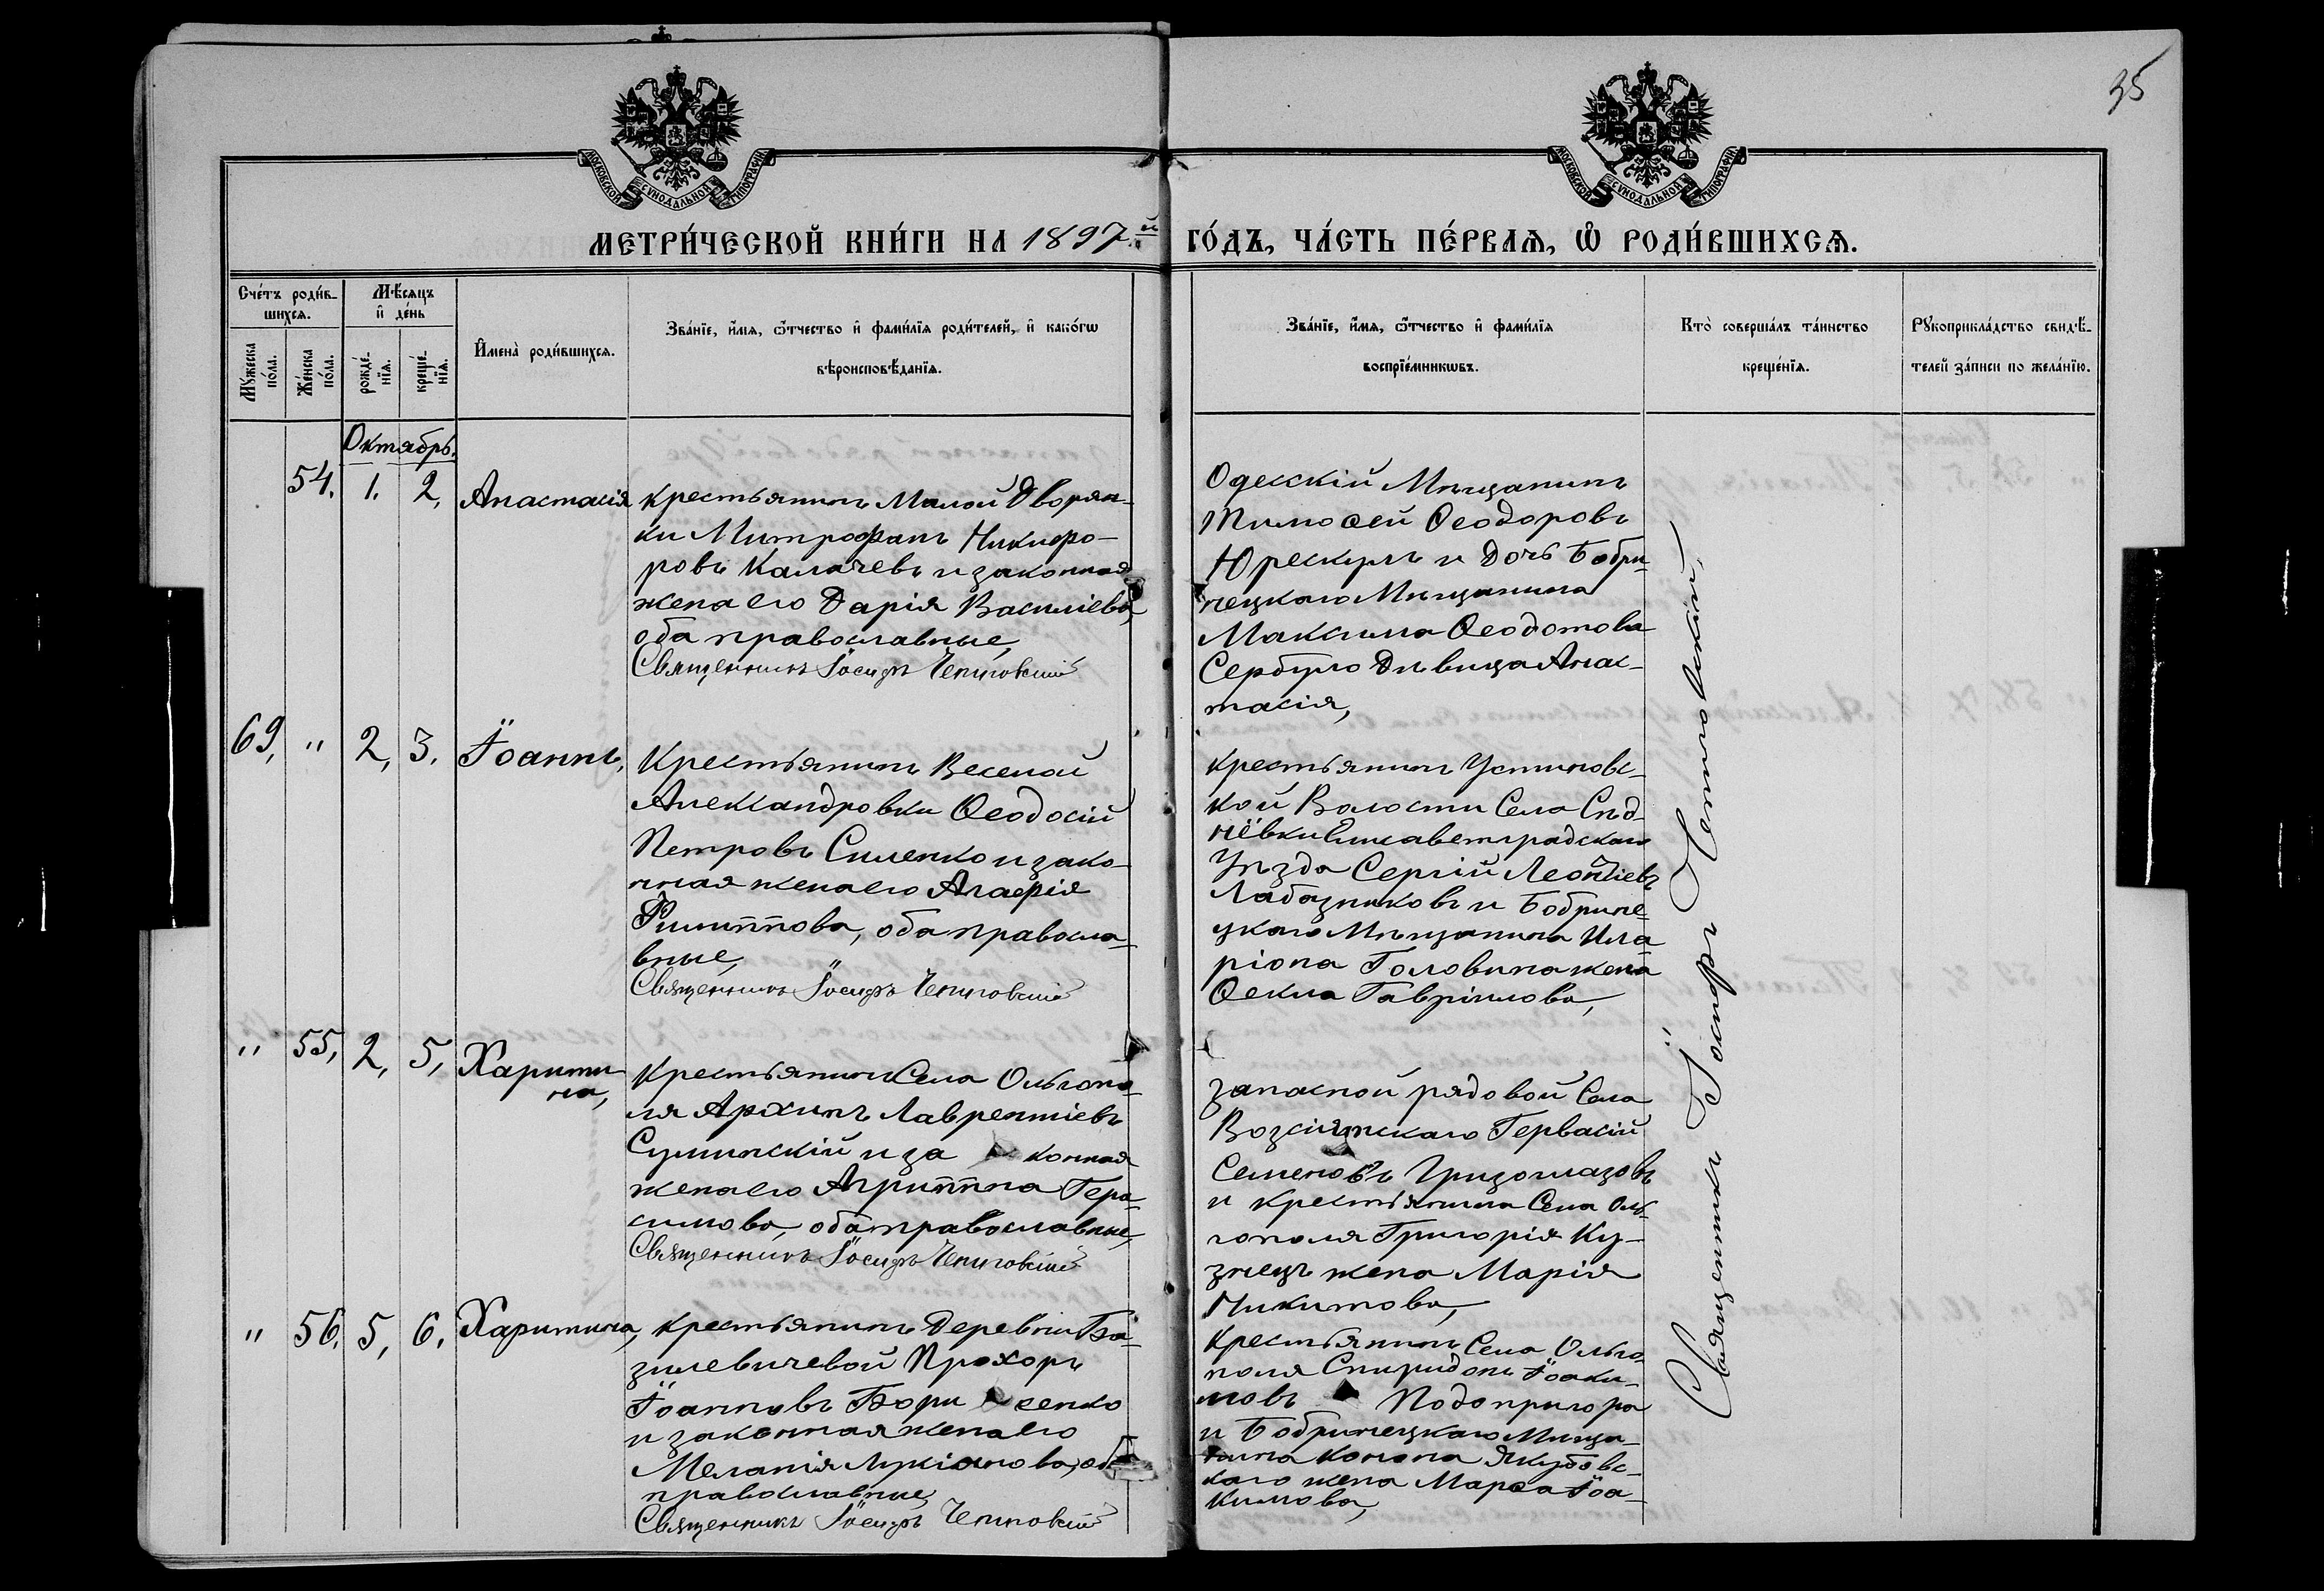 35
МОСКОВСКОЙ СѴНОДАЛЬНОЙ ТИПОГРАФІИ
МОСКОВСКОЙ СѴНОДАЛЬНОЙ ТИПОГРАФІИ
МЕТРИ́ЧЕСКОЙ КНИ́ГИ НА 1897.й ГО́ДЪ, ЧА́СТЬ ПЕ́РВАѦ, Ѡ РОДИ́ВШИХСѦ.
Сче́тъ роди́в-
шихсѧ.
Мꙋ́жеска
по́ла.
Же́нска
по́ла.
Мѣ́сѧцъ
и҆ де́нь
рожде́-
нїѧ.
креще́-
нїѧ.
И҆мена̀ роди́вшихсѧ.
Зва́нїе, и҆́мѧ, ѻ҆́тчество и҆ фами́лїѧ роди́телей, и҆ како́гѡ
вѣроисповѣ́данїѧ.
Зва́нїе, и҆́мѧ, ѻ҆́тчество и҆ фами́лїѧ
воспрїе́мникѡвъ.
Кто̀ соверша́лъ та́инство
креще́нїѧ.
Рꙋкоприкла́дство свидѣ́-
телей за́писи по жела́нїю.
Октябрь.
54. 1. 2. Анастасія
крестьянинъ Малой Дворян-
ки Митрофанъ Никифо-
ровъ Калачевъ и законная
жена его Дарія Василіева,
оба православные,
Священникъ Іосифъ Чепиговскій
Одесскій Мѣщанинъ
Тимоѳей Ѳеодоровъ
Юрескулъ и дочь Бобри-
нецкаго Мѣщанина
Максима Ѳеодотова
Сербуло Дѣвица Анас-
тасія,
69, " 2, 3. Іоаннъ,
Крестьянинъ Веселой
Александровки Ѳеодосій
Петровъ Силенко и зако-
нная жена его Агафія
Филиппова, оба правосла-
вные,
Священникъ Іосифъ Чепиговскій
крестьянинъ Устиновс-
кой Волости Села Сѣд-
нёвки Елисаветградскаго
Уѣзда Сергій Леонтіевъ
Лабазниковъ и Бобрине-
цкаго Мѣщанина Ила-
ріона Головина жена
Ѳекла Гавріилова,
" 55, 2, 5, Харити-
на,
Крестьянинъ Села Ольгопо-
ля Архипъ Лаврентіевъ
Сулинскій и за конная
жена его Агриппина Гера-
симова, оба православные,
Священникъ Іосифъ Чепиговскій
запасной рядовой Села
Возсіятскаго Гервасій
Семеновъ Гризоглазовъ
и крестьянина Села Оль-
гополя Григорія Ку-
знецъ жена Марія
Никитова,
" 56. 5, 6. Харитина,
крестьянинъ Деревни Ба-
зилевичевой Прохоръ
Іоанновъ Бори сенко
и законная жена его
Меланія Лукіанова, оба
православные,
Священникъ Іосифъ Чепиговскій
Крестьянинъ Села Ольго-
поля Спиридонъ Іоаки-
мовъ Подопригора
и Бобринецкаго Мѣща-
нина Конона Якубовс-
каго жена Марѳа Іоа-
кимова,
Священникъ Іосифъ Чепиговскій,